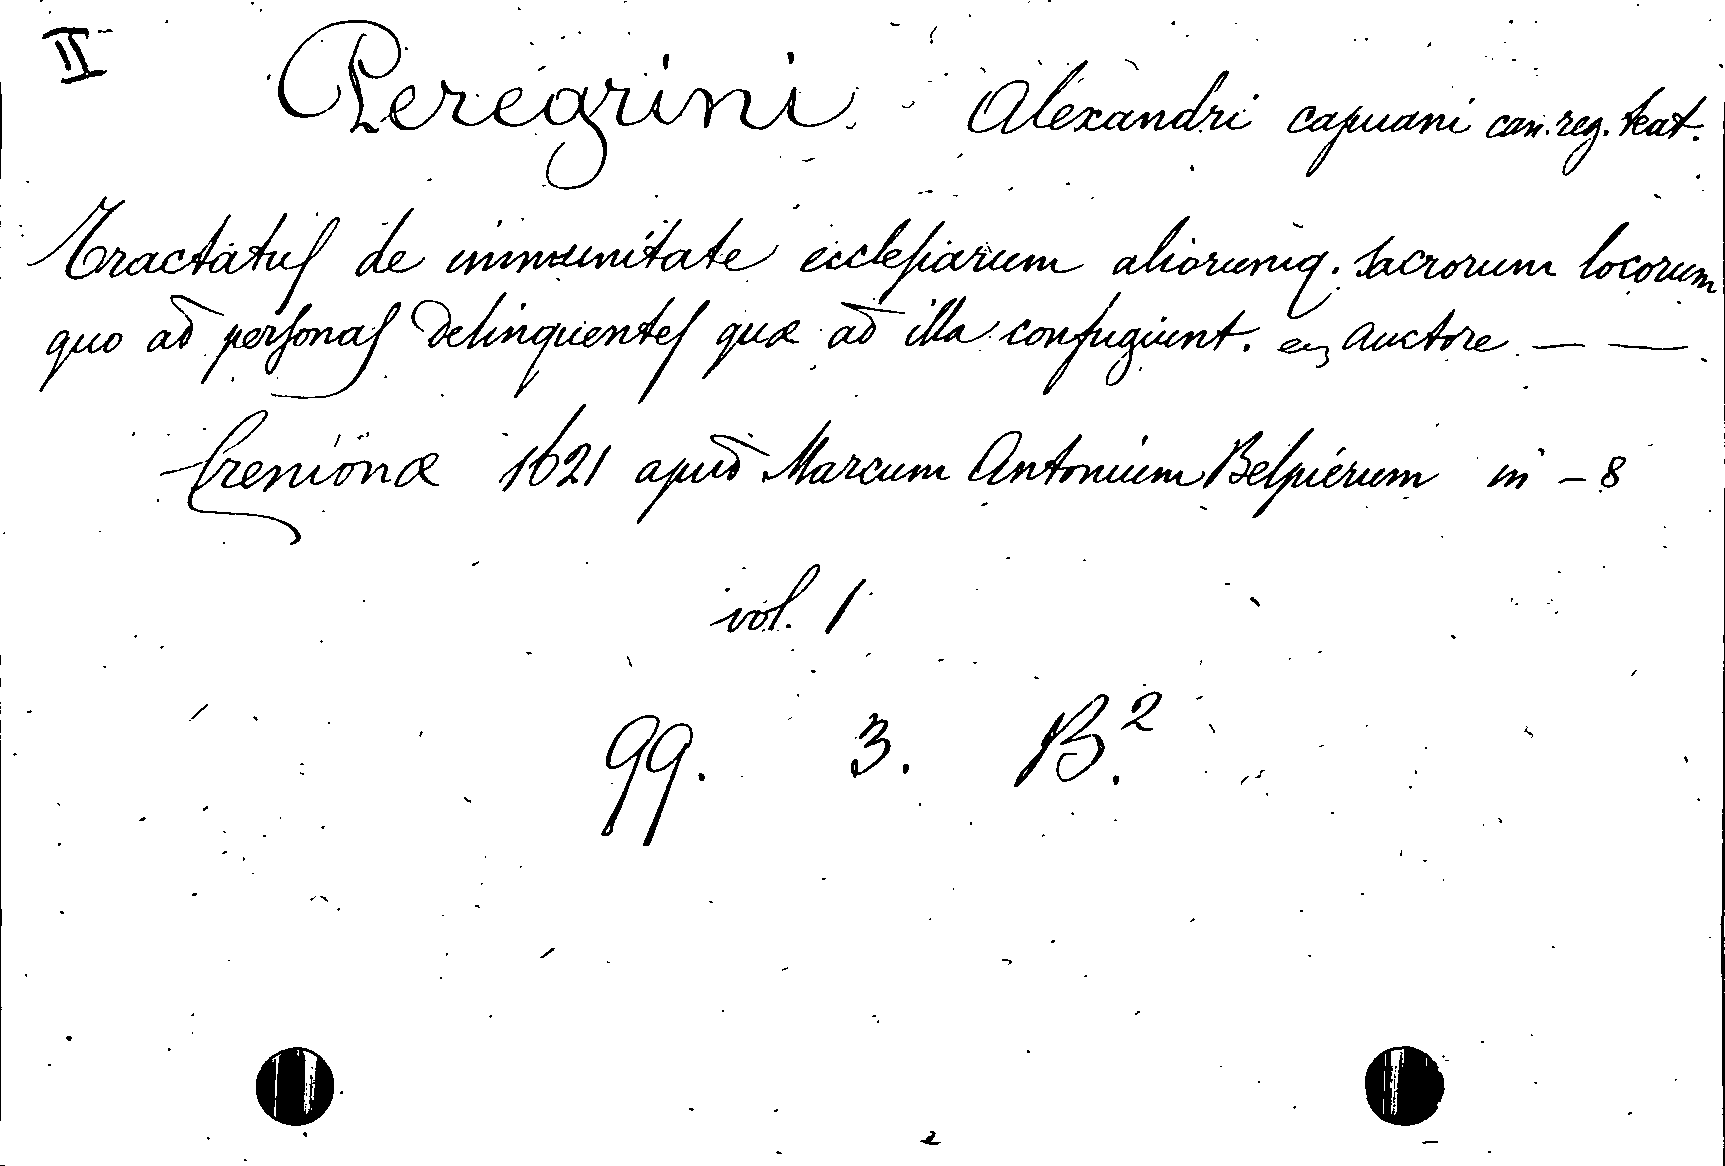 II Peregrini Alexandri capuani can. reg. teat.
Tractatus de immunitate ecclesiarum aliorumq. sacrorum locorum
quo ad personas delinquentes quæ ad illa confugiunt. auctore — —
Cremonæ 1621 apud Marcum Antonium Belpierum in - 8
vol. 1
99. 3. B.²
2